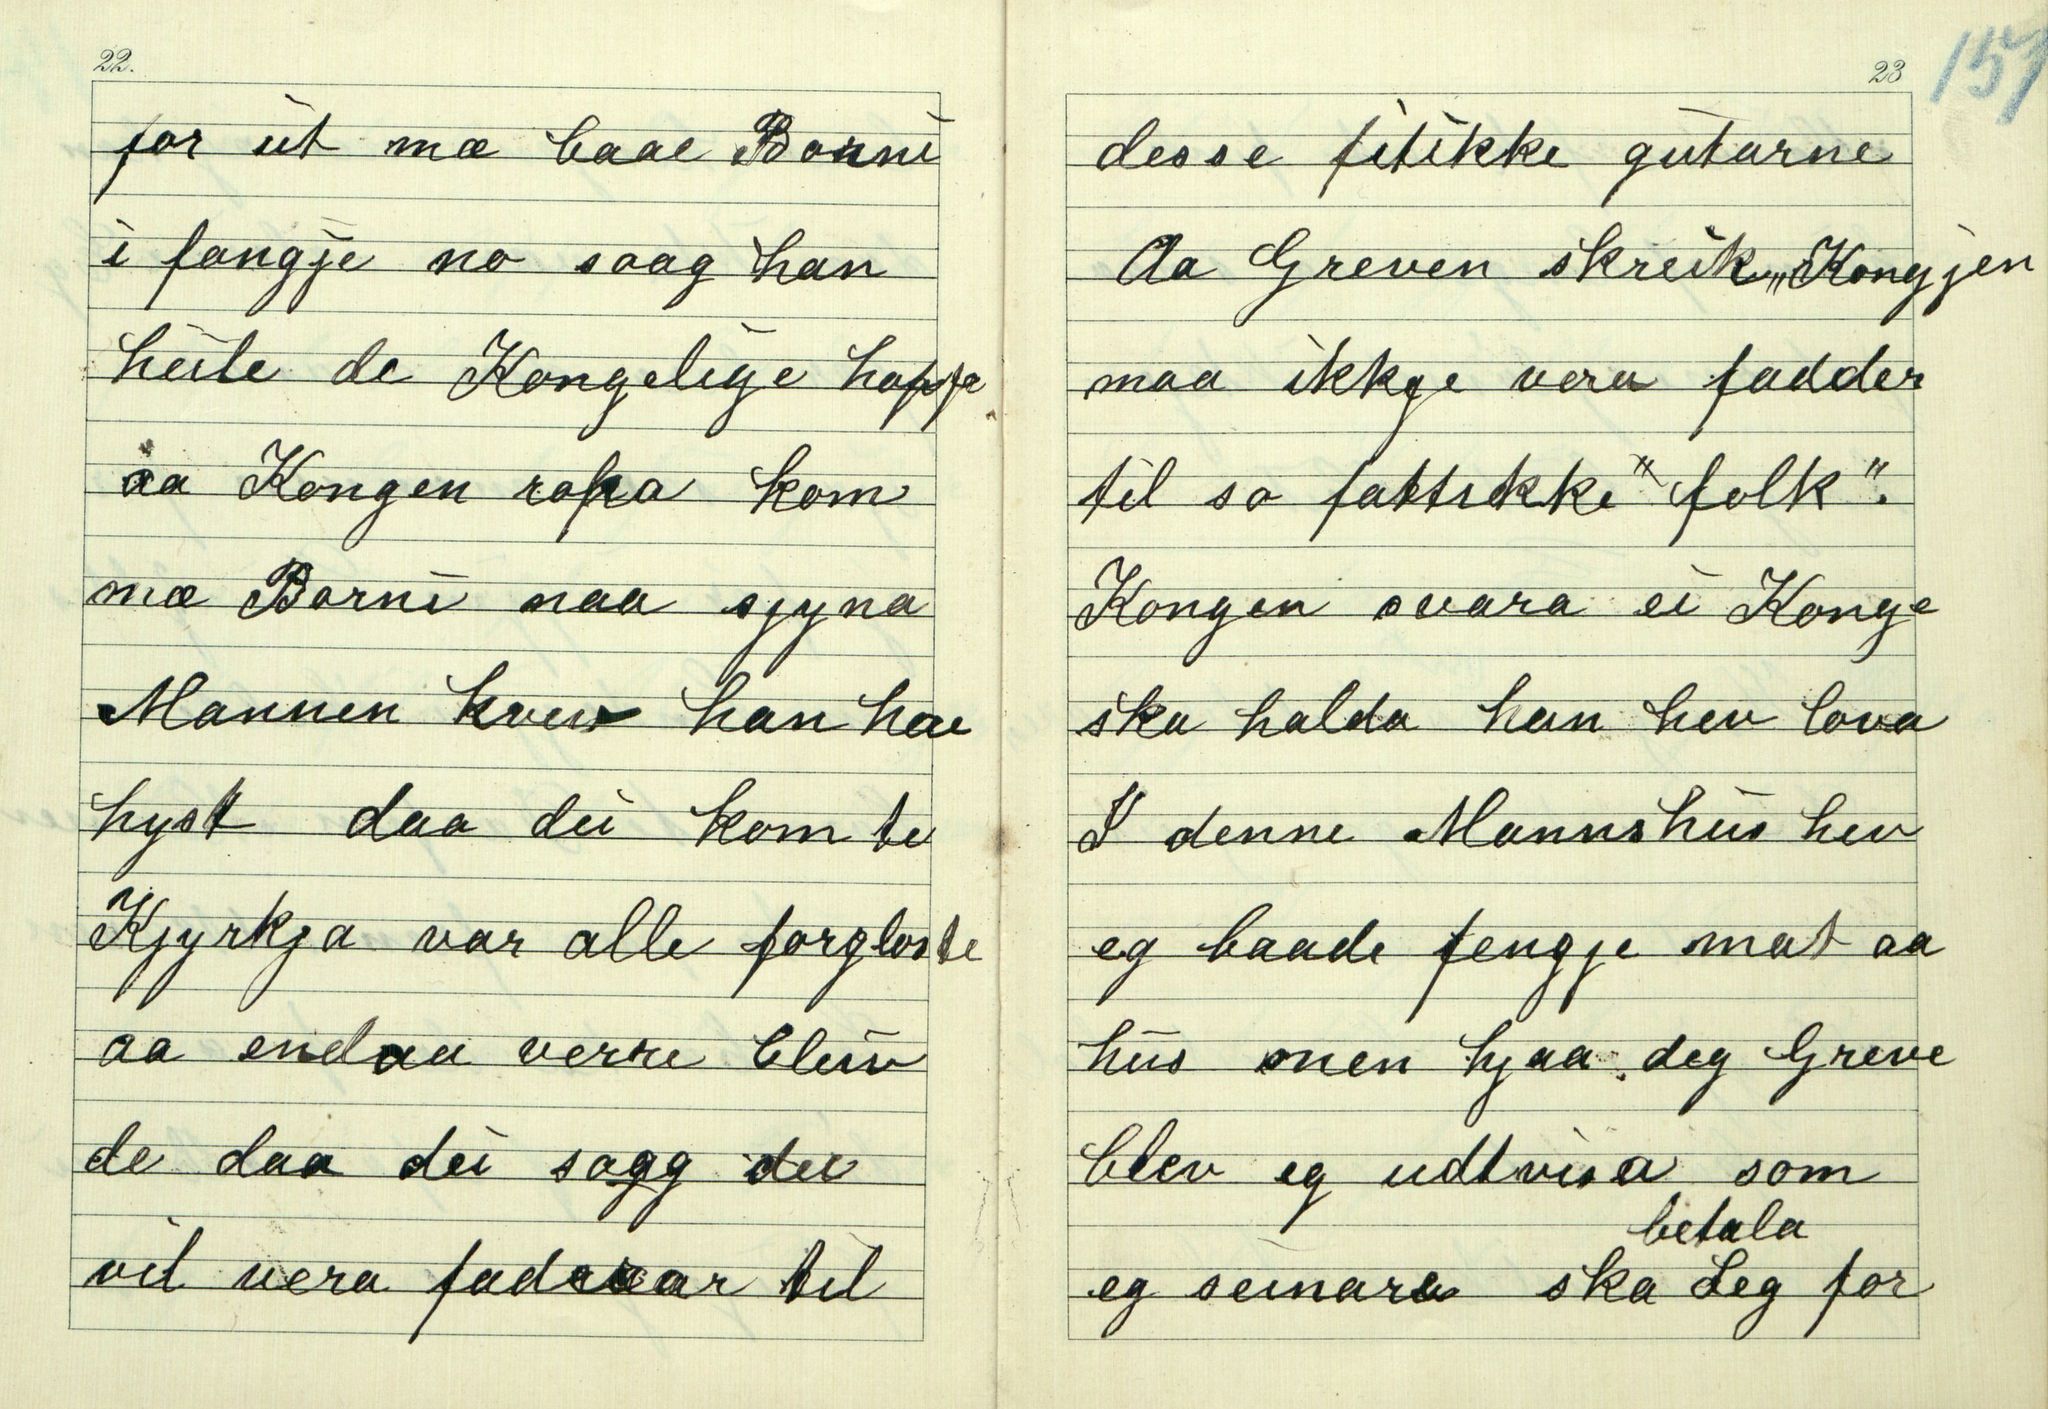 22.
for ut mæ baae Borni
i fangje no saag han
heile de Kongelige hopja
aa Kongen ropa kom
mæ Borni naa sjyna
Mannen kvev han hae
hyst daa dei kom te
Kjyrkja var alle forgloste
aa endaa verre bleiv
de daa dei sagg dei
vil vera fadrar til
23
151
desse fitikke gutarne
Aa Greven skreik „Kongjen
maa ikkje vera fadder
til so fattikke" folk".
Kongen svara ei Konge
ska halda han hev lova
I denne Mannshus hev
eg baade fengje mat aa
hus men hjaa deg Greve
blev eg udtvisa som
betala
eg seinare ska deg for